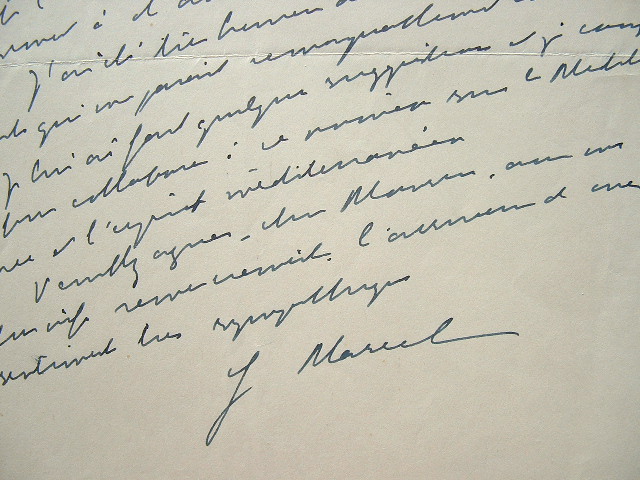 à d
J'ai été très heureux d
qui me paraît remarquablement
Je lui ai fait quelques suggestions et j
collaborer : ce numéro sur la Médit
et l'esprit méditerranéen
Veuillez agréer, cher Monsieur, avec m
vifs remerciements, l'assurance de me
sentiments très sympathiques
J Marcel